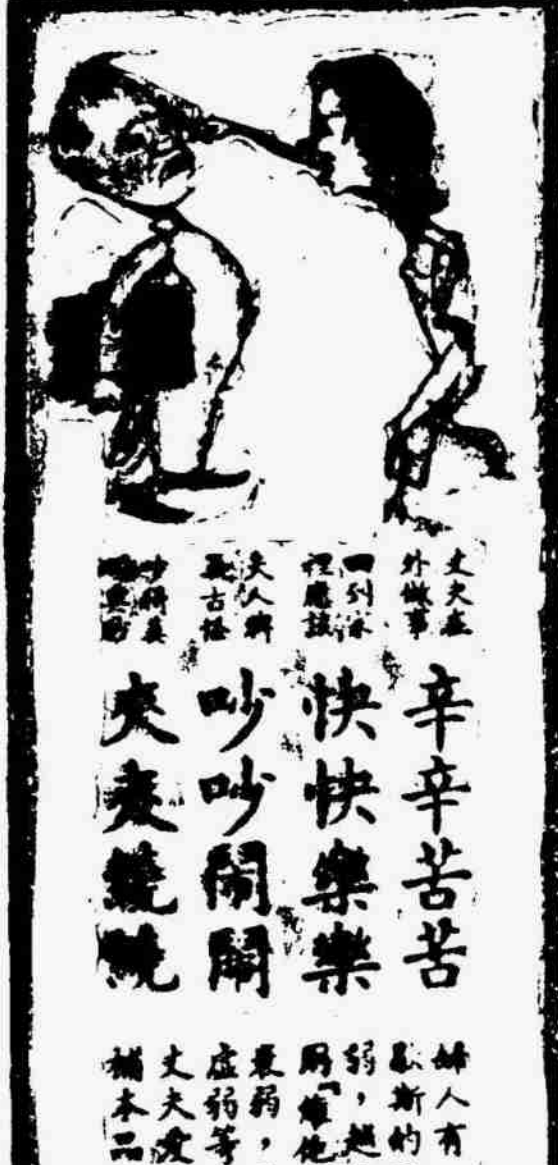 丈夫在
外做事
辛辛苦苦
回到家
裡應該
快快樂樂
夫人脾
古怪
吵吵鬧鬧
婦人有
斯的
弱,越
「維他
衰弱,
虛弱等
丈夫愛
補本品